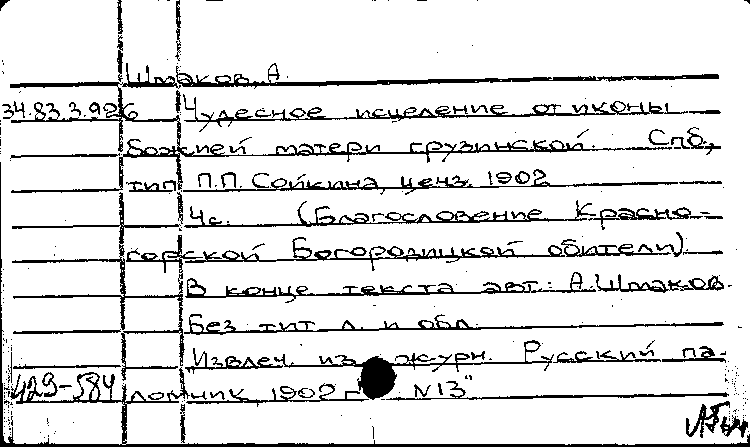 Шмаков, А.
34.83.3.926 Чудесное исцеление от иконы
Божией матери грузинской. Спб,
тип. П.П. Сойкина, ценз. 1902
4с. (Благословение Красно-
горской Богородицкой обители).
В конце текста авт.: А.Шмаков.
Без тит. л. и обл.
"Извлеч. из журн. Русский па-
429-584 ломник, 1902 г. N13"